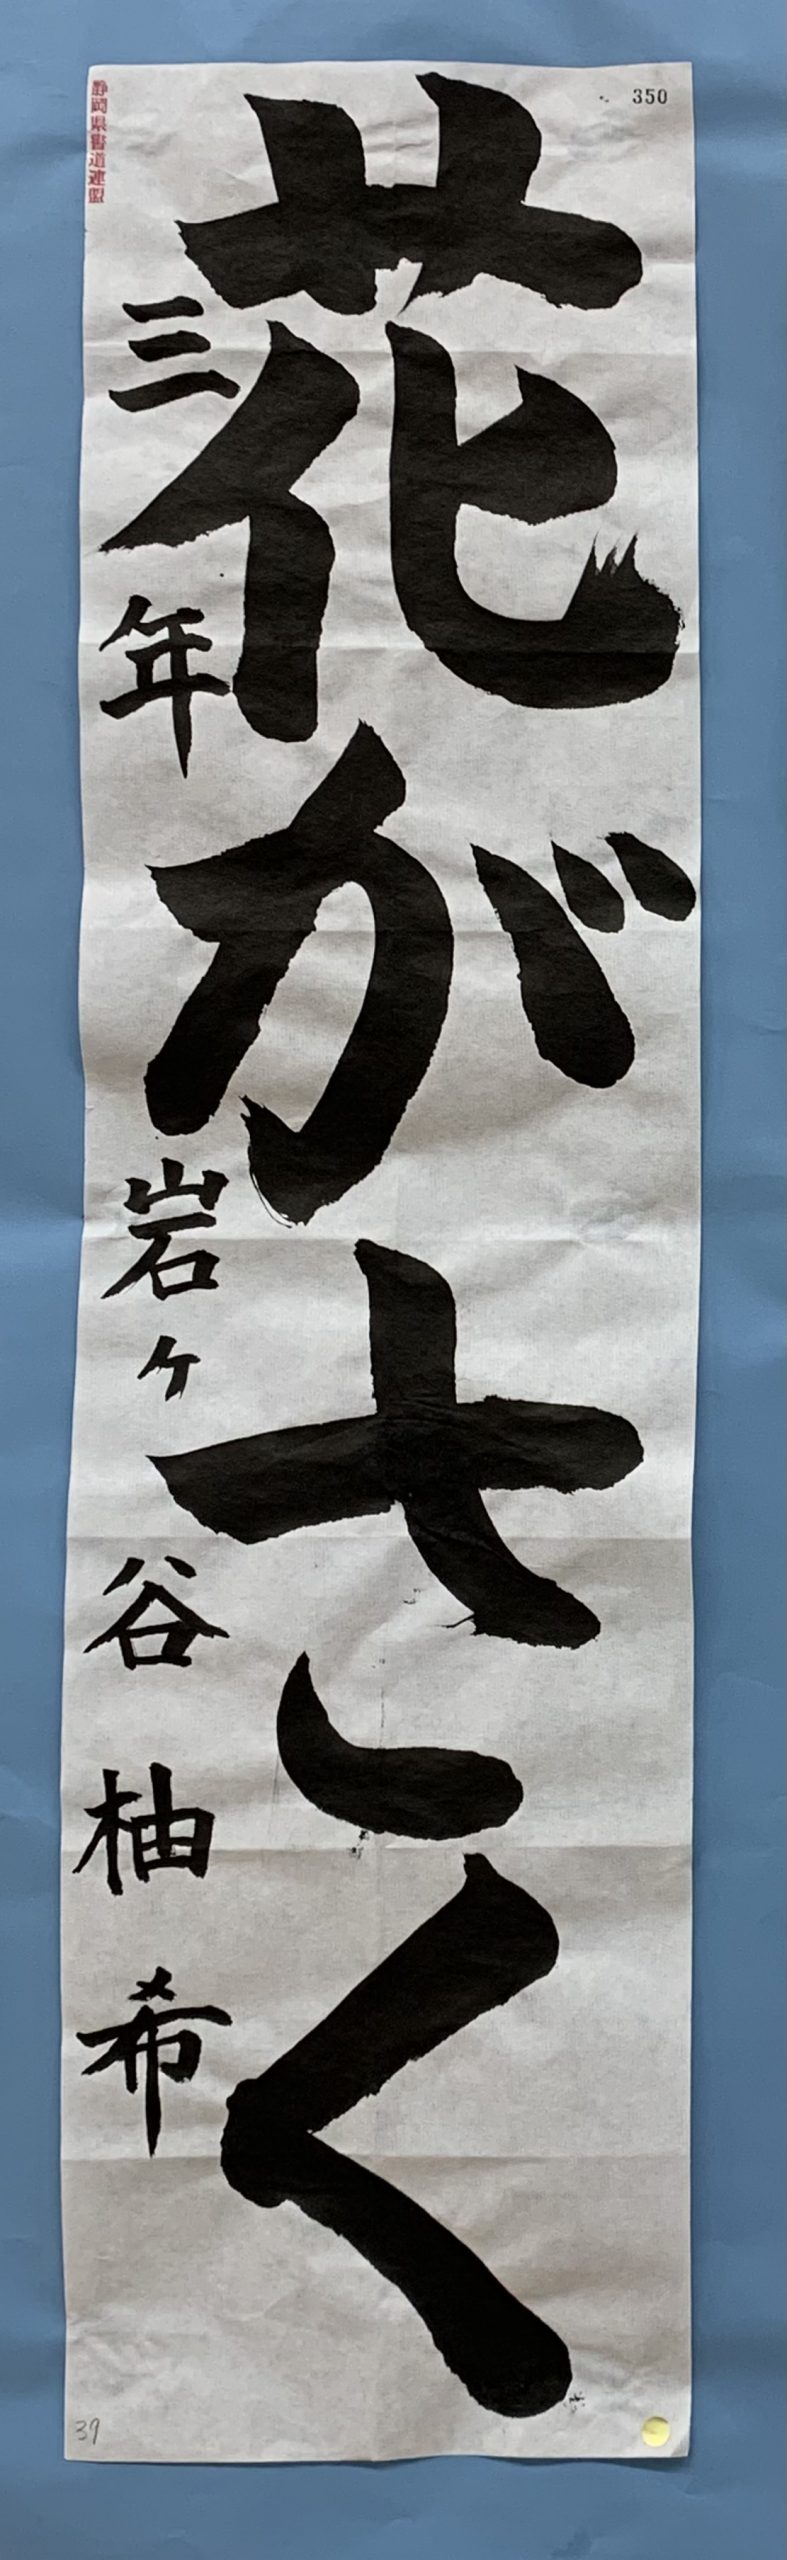 350
花がさく
静岡県書道連盟
三年 岩ヶ谷柚希
39